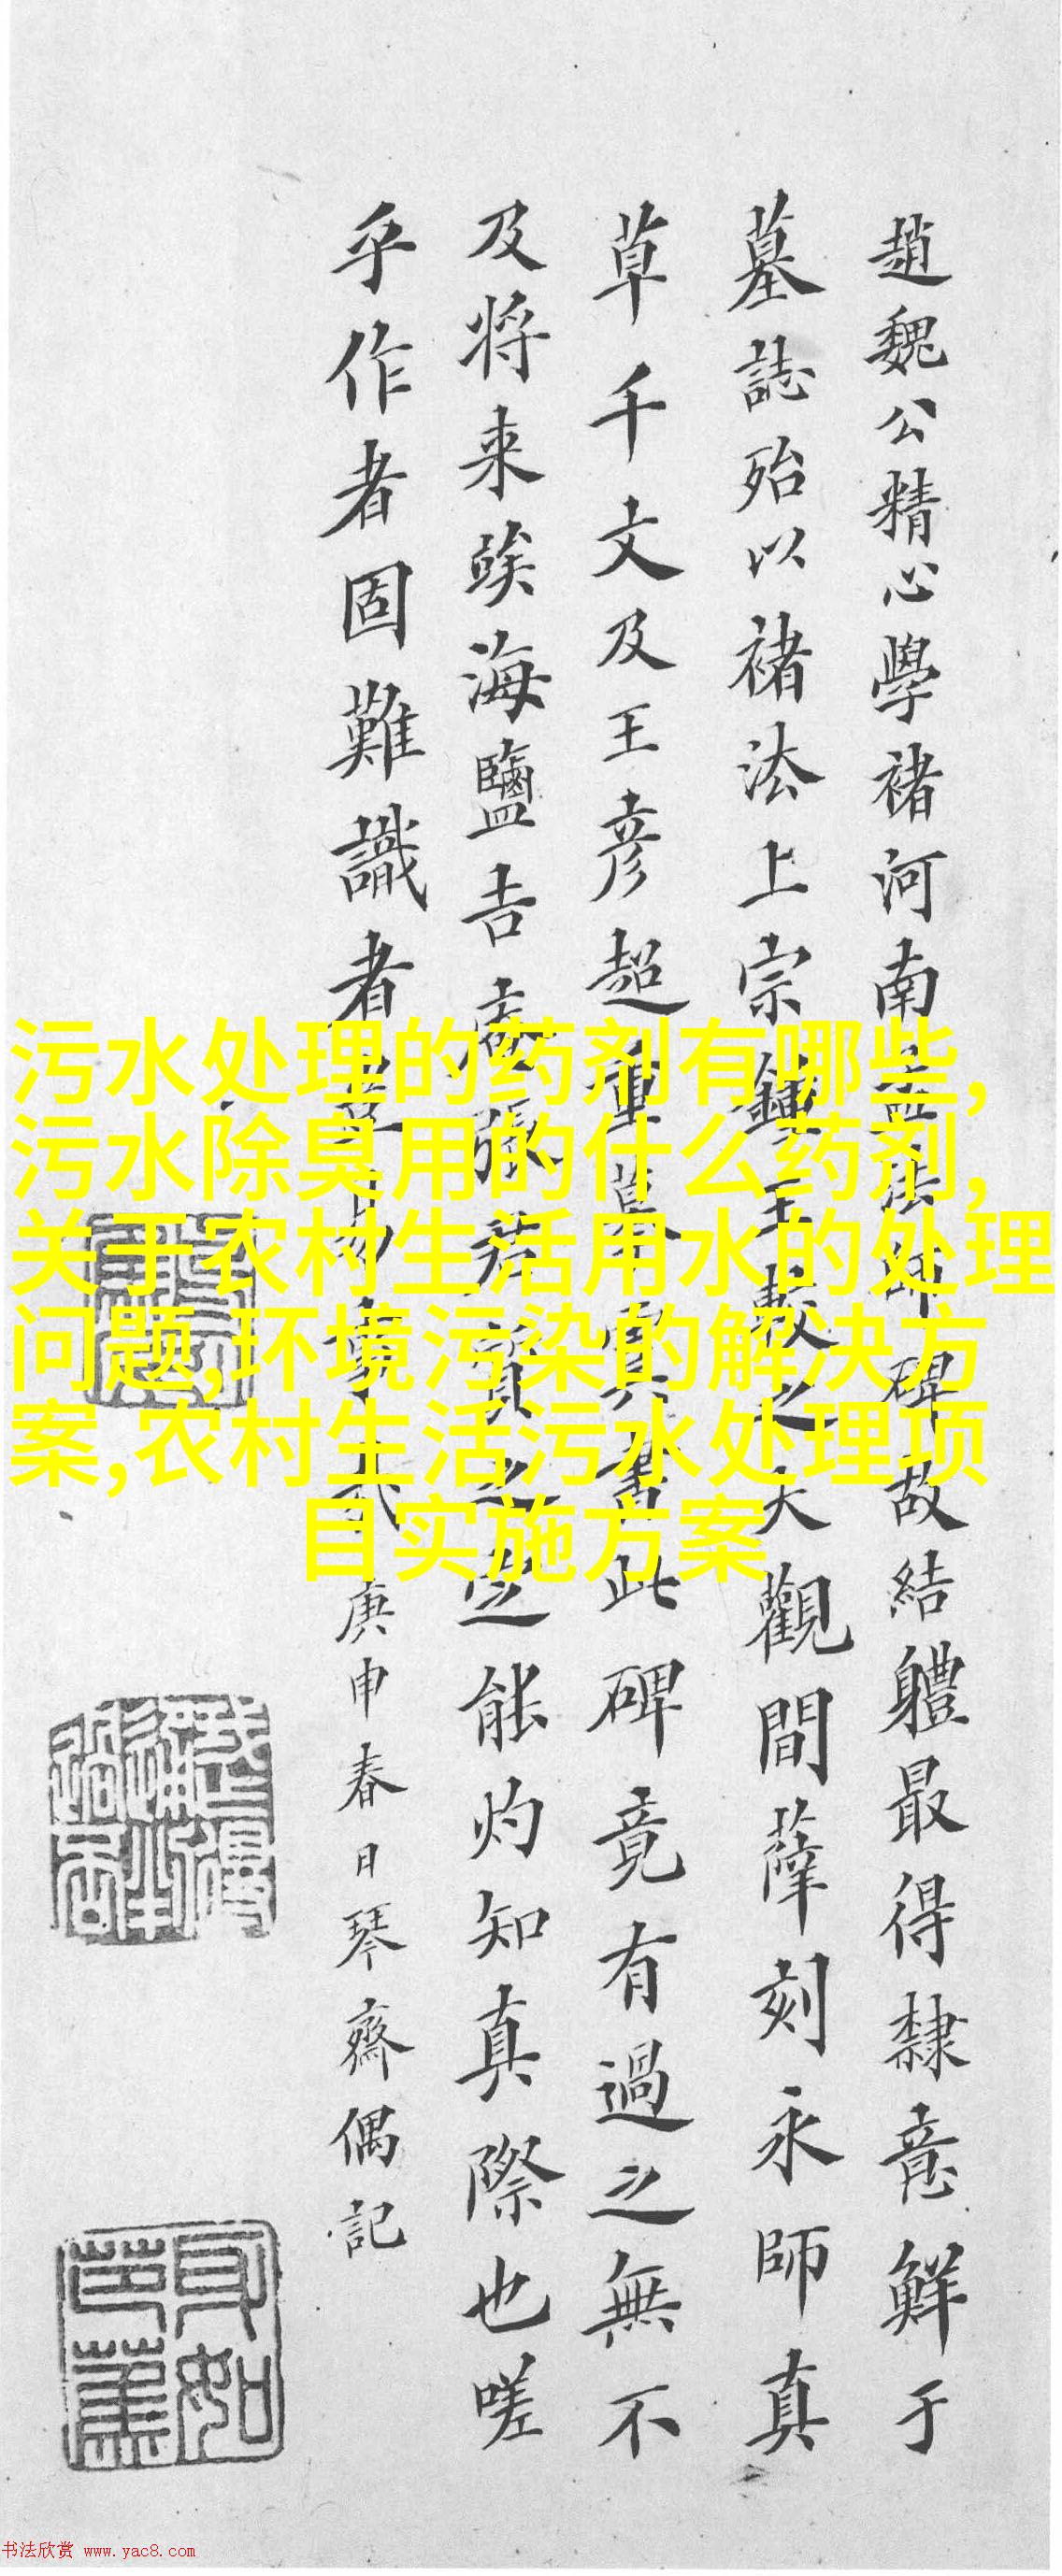 趙魏公精心學褚河南孟法師碑故結軆最得隸意鮮于
墓誌殆以褚法上宗鍾王較之大觀間薛刻永師真
草千文及王彦超重摹虞書此碑竟有過之無不
及将来竢海鹽吉廠張君質之定能灼知真際也嗟
乎作者固難識者豈易事哉庚申春日琴齋偶記
污水处理的药剂有哪些,
污水除臭用的什么药剂,
关于农村生活用水的处理
问题,环境污染的解决方
案,农村生活污水处理项
目实施方案
书法欣赏 www.yac8.com